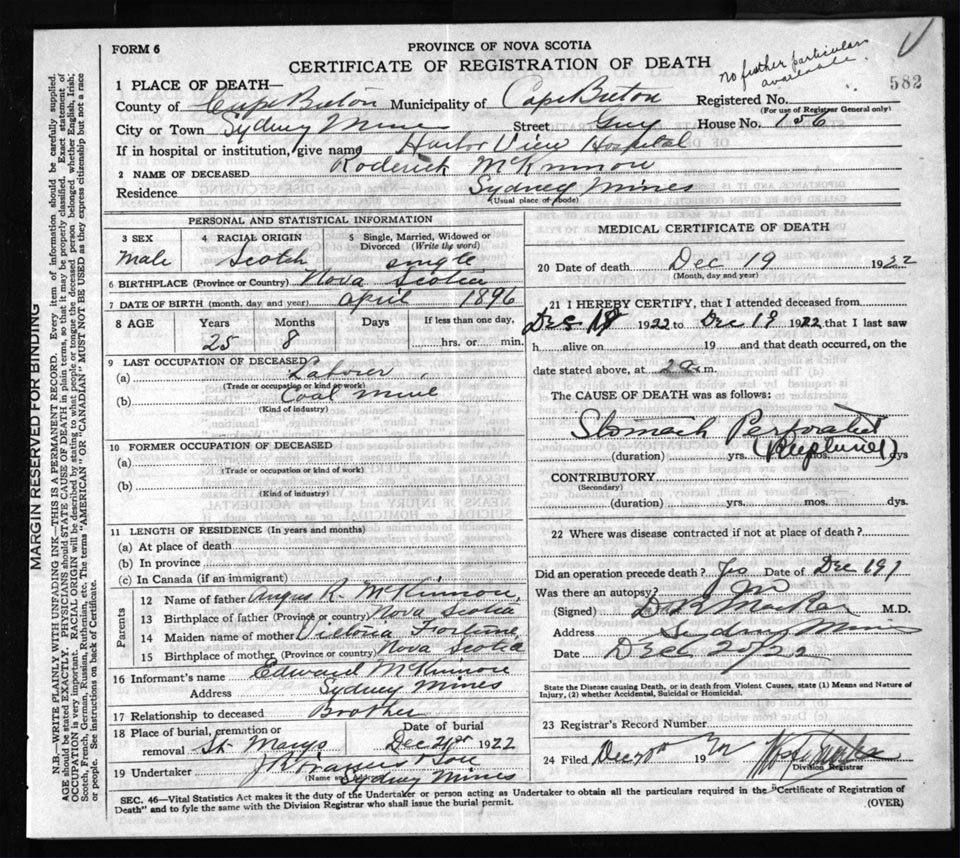 FORM 6
PROVINCE OF NOVA SCOTIA
CERTIFICATE OF REGISTRATION OF DEATH
no further particulars
available.
582
1 PLACE OF DEATH—
County of Cape Breton Municipality of Cape Breton Registered No.
(For use of Registrar General only)
City or Town Sydney Mines Street Guy House No.
If in hospital or institution, give name Harbor View Hospital
2 NAME OF DECEASED Roderick McKinnon
Residence Sydney Mines
(Usual place of abode)
PERSONAL AND STATISTICAL INFORMATION
3 SEX 4 RACIAL ORIGIN 5 Single, Married, Widowed or Divorced (Write the word)
male Scotch single
6 BIRTHPLACE (Province or Country) Nova Scotia
7 DATE OF BIRTH (month, day and year) April 1896
8 AGE Years Months Days If less than one day,
25 8 hrs. or min.
9 LAST OCCUPATION OF DECEASED
(a) Laborer
(Trade or occupation or kind of work)
(b) Coal mine
(Kind of industry)
10 FORMER OCCUPATION OF DECEASED
(a)
(Trade or occupation or kind of work)
(b)
(Kind of industry)
11 LENGTH OF RESIDENCE (In years and months)
(a) At place of death
(b) In province
(c) In Canada (if an immigrant)
Parents
12 Name of father Angus R. McKinnon
13 Birthplace of father (Province or country) Nova Scotia
14 Maiden name of mother Victoria Fortune
15 Birthplace of mother (Province or country) Nova Scotia
16 Informant's name Edward McKinnon
Address Sydney Mines
17 Relationship to deceased Brother
18 Place of burial, cremation or removal St Marys
Date of burial Dec 21st 1922
19 Undertaker & Son
(Name and address) Sydney Mines
MEDICAL CERTIFICATE OF DEATH
20 Date of death Dec 19 1922
(Month, day and year)
21 I HEREBY CERTIFY, that I attended deceased from
Dec 1922 to Dec 19 1922, that I last saw
h alive on 19 and that death occurred, on the
date stated above, at 2 a. m.
The CAUSE OF DEATH was as follows:
Stomach Perforated
(Ruptured)
(duration) yrs. mos. dys
CONTRIBUTORY
(Secondary)
(duration) yrs. mos. dys.
22 Where was disease contracted if not at place of death?
Did an operation precede death? Yes Date of Dec 19
Was there an autopsy? No
(Signed) M.D.
Address Sydney Mines
Date Dec 20/22
State the Disease causing Death, or in death from Violent Causes, state (1) Means and Nature of
Injury, (2) whether Accidental, Suicidal or Homicidal.
23 Registrar's Record Number
24 Filed Dec 19
Division Registrar
SEC. 46—Vital Statistics Act makes it the duty of the Undertaker or person acting as Undertaker to obtain all the particulars required in the "Certificate of Registration of
Death" and to fyle the same with the Division Registrar who shall issue the burial permit. (OVER)
MARGIN RESERVED FOR BINDING
N.B.—WRITE PLAINLY WITH UNFADING INK—THIS IS A PERMANENT RECORD. Every item of information should be carefully supplied.
AGE should be stated EXACTLY. PHYSICIANS should STATE CAUSE OF DEATH in plain terms, so that it may be properly classified. Exact statement of
OCCUPATION is very important. RACIAL ORIGIN will be described by stating to what people or tongue the deceased person belonged whether English, Irish,
Scotch, French, German, Russian, Ruthenian, etc. The terms "AMERICAN" OR "CANADIAN" MUST NOT BE USED as they express citizenship but not a race
or people. See instructions on back of Certificate.